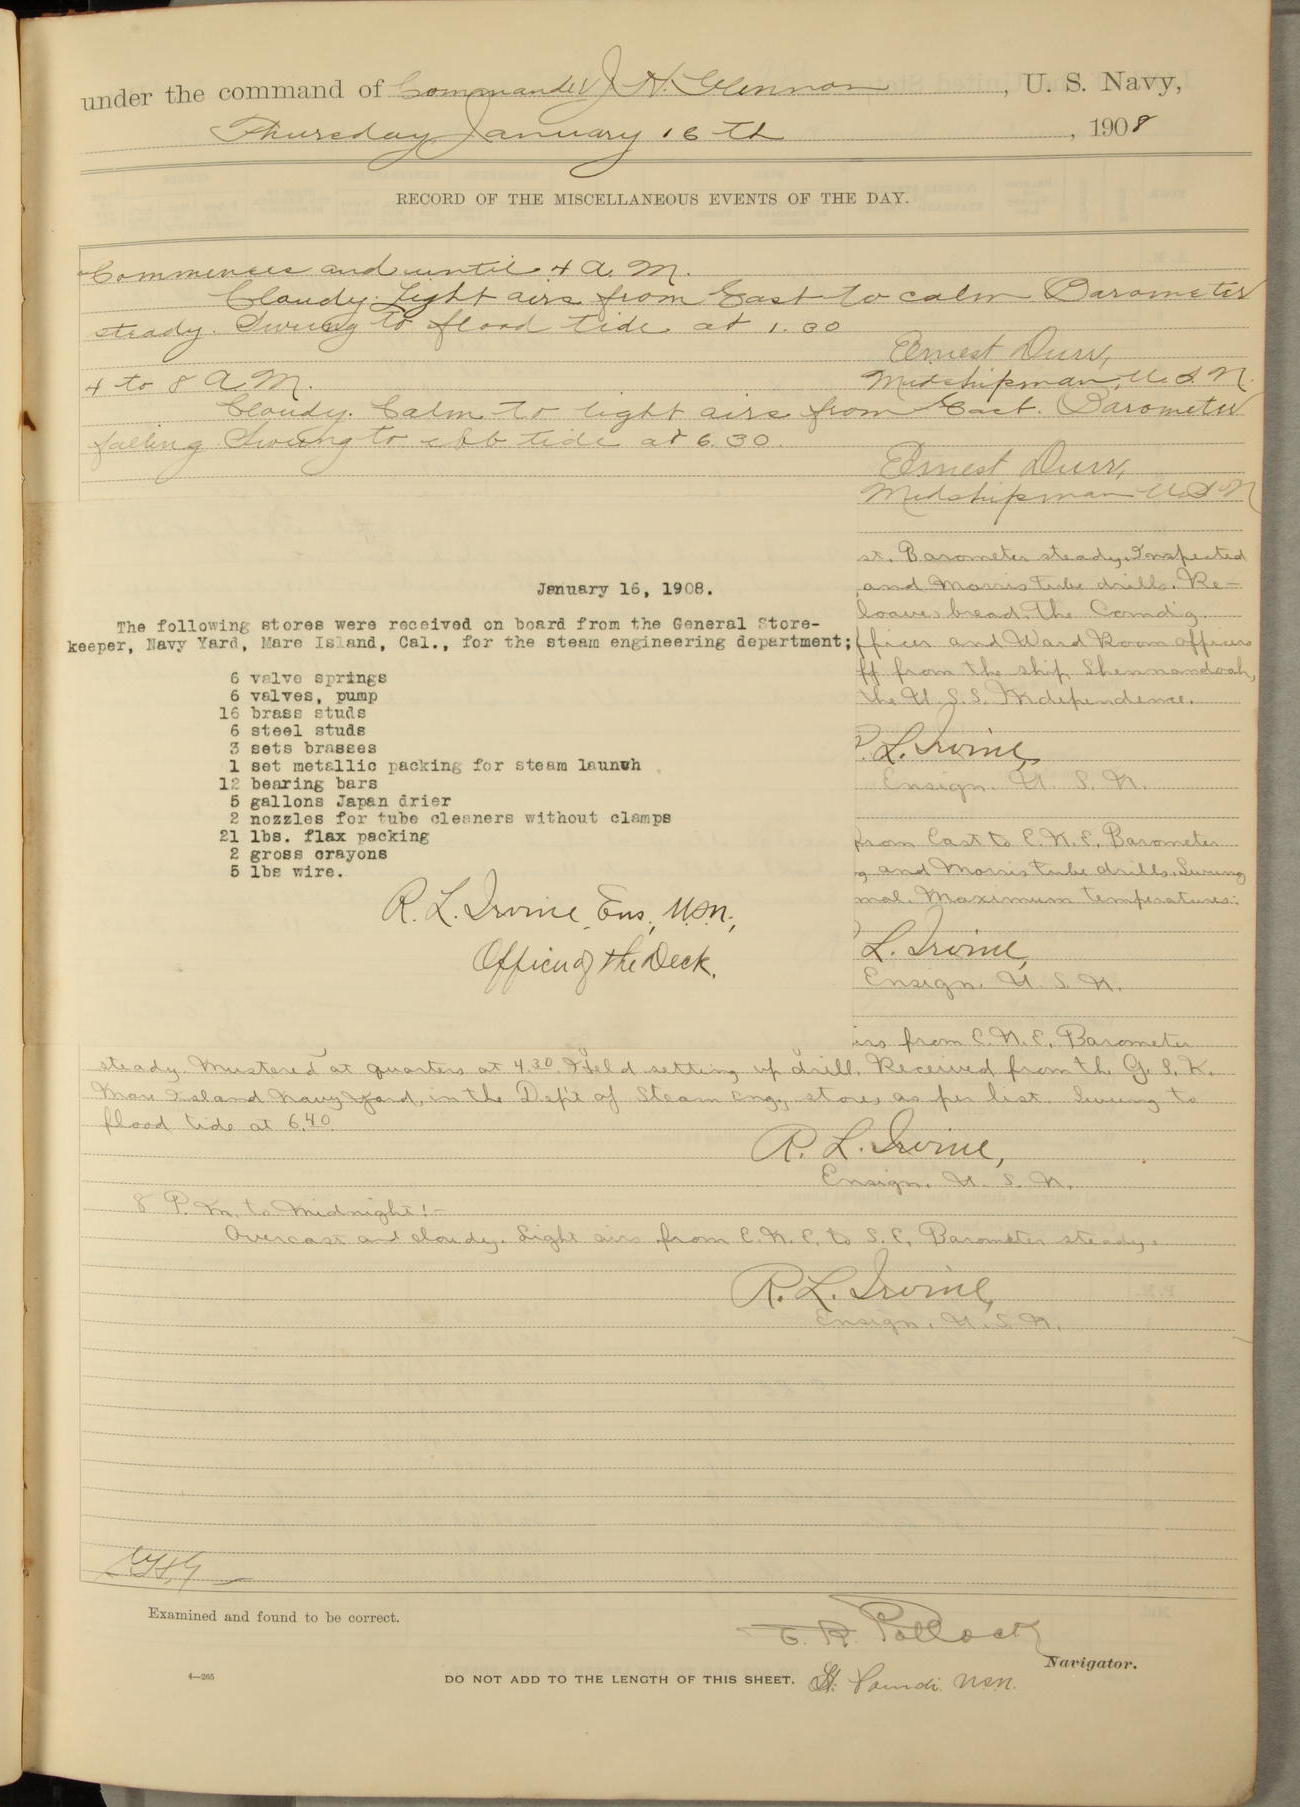 under the command of Commander J. H. Glennon, U. S. Navy,
Thursday January 16th, 1908
RECORD OF THE MISCELLANEOUS EVENTS OF THE DAY.
Commences and until 4 A. M.
Cloudy. Light airs from East to calm Barometer
steady. Swung to flood tide at 1.30
Ernest Durr,
Midshipman, U. S. N.
4 to 8 A. M.
Cloudy. Calm to light airs from East. Barometer
falling Swung to ebb tide at 6.30.
Ernest Durr,
Midshipman U. S. N
st. Barometer steady. Inspected
and Morris tube drills. Re-
loaves bread. The Comd'g
fficer and Ward Room officers
ff from the ship Shennandoah,
the U. S. S. Independence.
L. Irvine,
Ensign. U. S. N.
from East to E. N. E. Barometer
g and Morris tube drills. Swung
mal. Maximum temperatures:
L. Irvine,
Ensign. U. S. N.
January 16, 1908.
The following stores were received on board from the General Store-
keeper, Navy Yard, Mare Island, Cal., for the steam engineering department;
6 valve springs
6 valves, pump
16 brass studs
6 steel studs
3 sets brasses
1 set metallic packing for steam launvh
12 bearing bars
5 gallons Japan drier
2 nozzles for tube cleaners without clamps
21 lbs. flax packing
2 gross crayons
5 lbs wire.
R. L. Irvine, Ens., U.S.N.,
Officer of the Deck.
irs from E. N. E. Barometer
steady. Mustered at quarters at 4.30. Held setting up drill. Received from the G. S. K.
Mare Island Navy Yard, in the Dep't of Steam Eng., stores as per list. Swung to
flood tide at 6.40.
R. L. Irvine,
Ensign. U. S. N.
8 P. M. to Midnight:-
Overcast and cloudy. Light airs from E. N. E. to S. E. Barometer steady.
R. L. Irvine,
Ensign. U. S. N.
Examined and found to be correct.
E. R. Pollock
Navigator.
4—265
DO NOT ADD TO THE LENGTH OF THIS SHEET.
U.S.N.